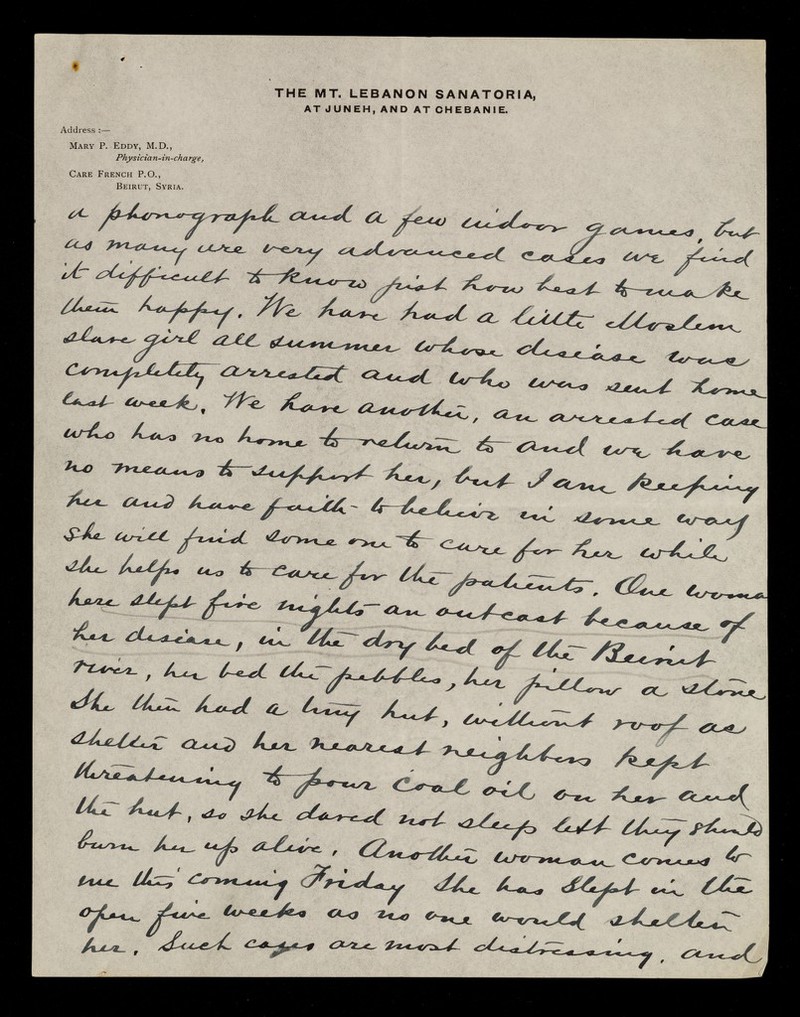 THE MT. LEBANON SANATORIA,
AT JUNEH, AND AT CHEBANIE.
Address :—
MARY P. EDDY, M.D.,
Physician-in-charge,
CARE FRENCH P.O.,
BEIRUT, SYRIA.
a phonograph and a few indoor games, but
as many are very advanced cases we find
it difficult to know just how best to make
them happy. We have had a little Moslem
slave girl all summer whose disease was
completely arrested and who was sent home
last week. We have another, an arrested case
who has no home to return to and we have
no means to support her, but I am keeping
her and have faith to believe in some way
she will find some one to care for her while
she helps us to care for the patients. One woma
here slept five nights an outcast because of
her disease, in the dry bed of the Beirut
river, her bed the pebbles, her pillow a stone
She then had a tiny hut, without roof as
shelter and her nearest neighbors kept
threatening to pour coal oil on her and
the hut, so she dared not sleep lest they should
burn her up alive. Another woman comes to
me this coming Friday She has slept in the
open five weeks as no one would shelter
her. Such cases are most distressing. and